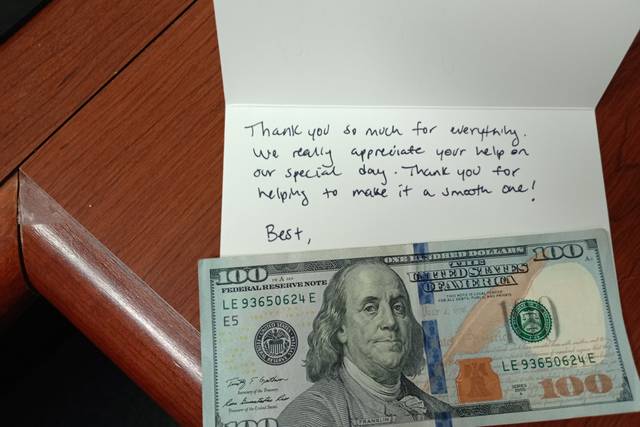 Thank you so much for everything.
We really appreciate your help on
our special day. Thank you for
helping to make it a smooth one!
Best,
100
ONE HUNDRED DOLLARS
100
FEDERAL RESERVE NOTE
THE
UNITED STATES
OF AMERICA
LE 93650624 E
E5
THIS NOTE IS LEGAL TENDER
FOR ALL DEBTS, PUBLIC AND PRIVATE
LE 93650624 E
Secretary of the Treasury
Treasurer of the United States
SERIES
2009
A
100
FRANKLIN
100